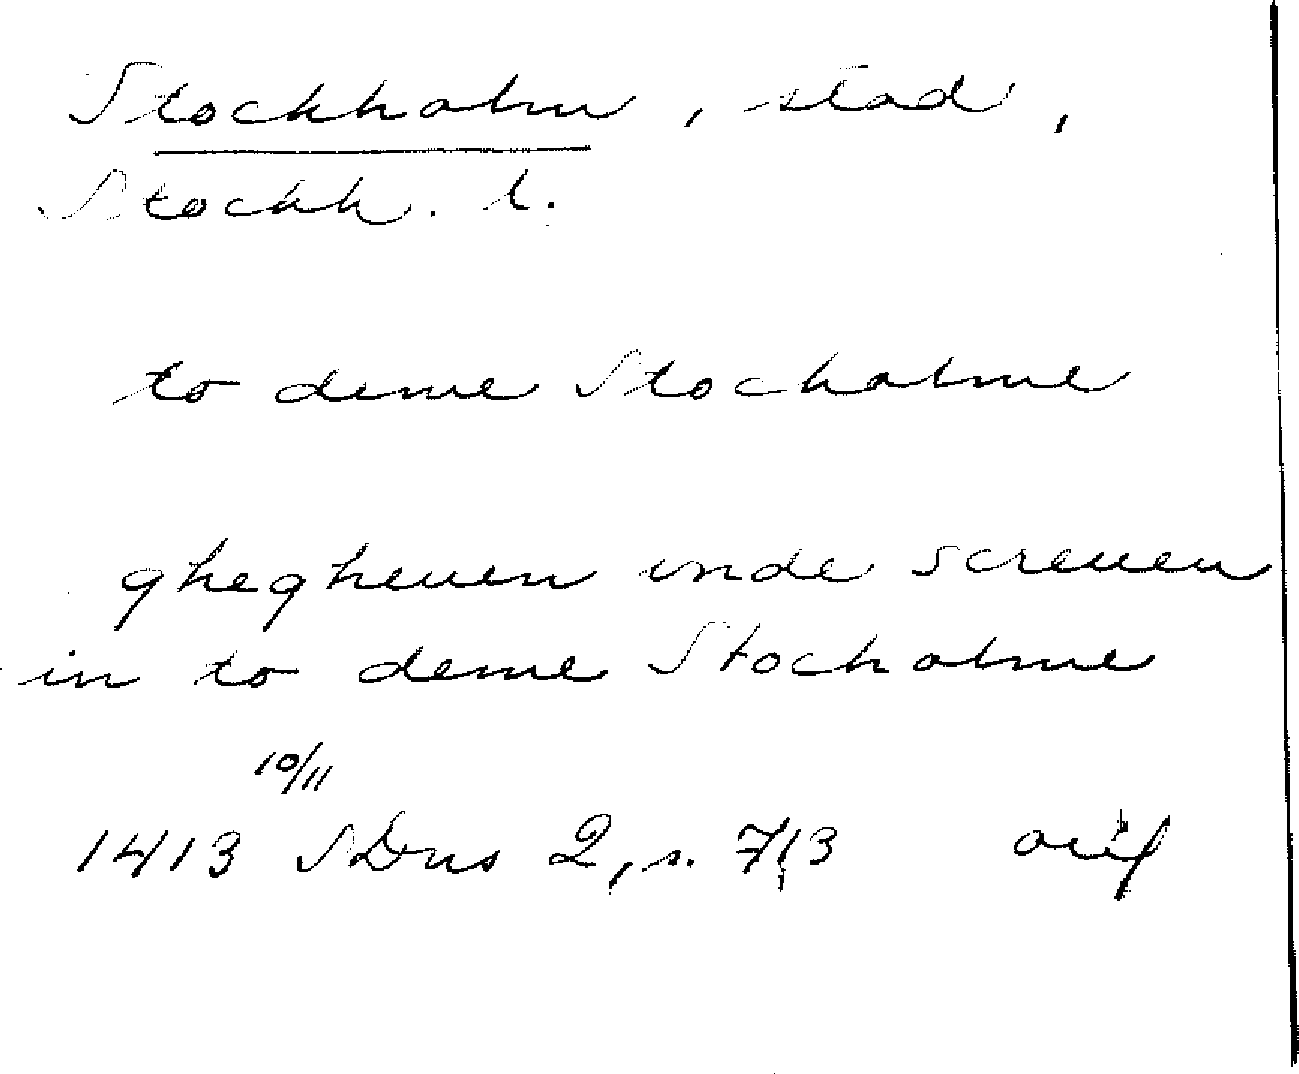 Stockholm, stad,
Stockh. l.
to deme Stocholme
ghegheuen vnde screuen
in to deme Stocholme
10/11
1413 SDns 2, s. 713 avskr